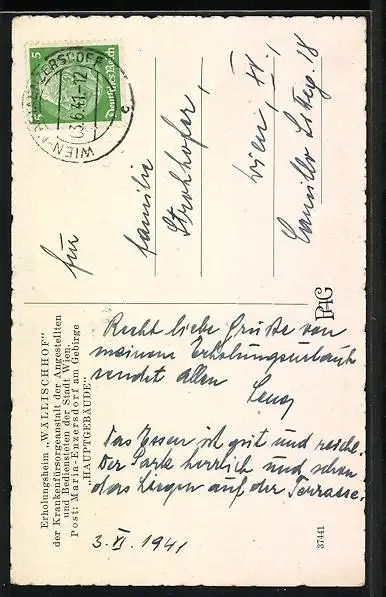 Erholungsheim „WÄLLISCHHOF"
der Krankenfürsorgeanstalt der Angestellten
und Bediensteten der Stadt Wien.
Post: Maria-Enzersdorf am Gebirge
„HAUPTGEBÄUDE"
Recht liebe Grüße von
meinem Erholungsurlaub
sendet allen
Das Essen ist gut und reichl.
Der Park herrlich und schön
das Liegen auf der Terrasse.
3. VI. 1941
37441
PAG
5
5
Deutsches Reich
WIEN-
3.6.41.-12
c
für
Familie
Strohhofer,
Wien, IV.,
18